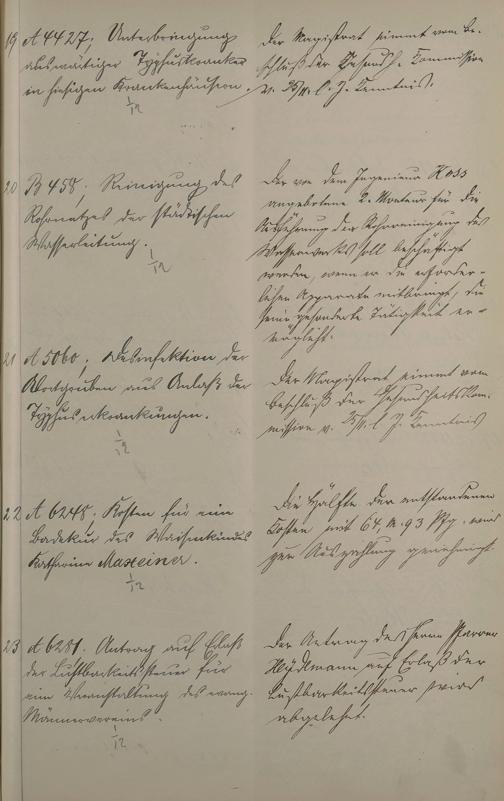 19 A 4427, Unterbringung
auswärtiger Typhuskranker
in hiesigen Krankenhäusern.
1/12
Der Magistrat nimmt vom Be-
schluß der Gesundh. Kommission
v. 25/11. l. J. Kenntnis.
20 B 458, Reinigung des
Rohrnetzes der städtischen
Wasserleitung.
1/12
Der von dem Ingenieur Koss
angebotene 2. Monteur für die
Ausführung der Rohrreinigung des
Wasserwerks soll beschäftigt
werden, wenn er die erforder-
lichen Apparate mitbringt, die
seine gesonderte Tätigkeit er-
möglicht.
21 A 5060, Desinfektion der
Abortgruben aus Anlaß der
Typhuserkrankungen.
1/12
Der Magistrat nimmt vom
Beschluß der Gesundheitskom-
mission v. 25/11. l. J. Kenntnis
22 A 6248, Kosten für eine
Badekur des Waisenkindes
Katharine Masteiner.
1/12
Die Hälfte der entstandenen
Kosten mit 64 M. 93 Pfg. wird
zur Auszahlung genehmigt.
23 A 6281. Antrag auf Erlaß
der Lustbarkeitssteuer für
eine Veranstaltung des evang.
Männervereins.
1/12
Der Antrag des Herrn Pfarrer
auf Erlaß der
Lustbarkeitssteuer wird
abgelehnt.